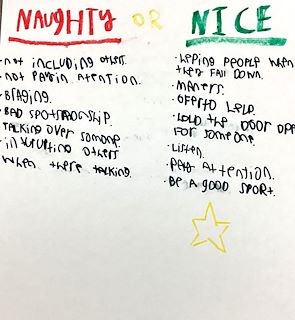 NAUGHTY OR NICE
• not including others.
• not payin atention.
• Braging.
• BAD spotstronship.
• TALKING over somone.
• inturupting others
when there talking.
• Helping people when
they Fall Down.
• Maners.
• OFer to help.
• Hold the Door ope
For someone.
• Listen.
• Pay Attention.
• Be A good sport.